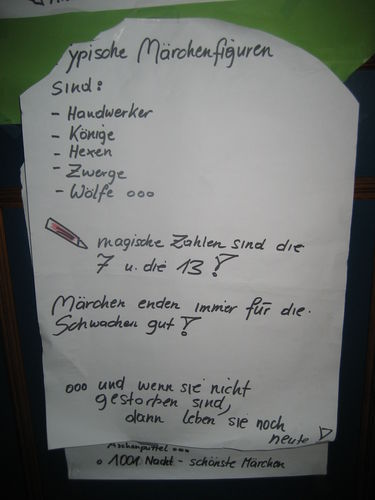 ypische Märchenfiguren
sind:
- Handwerker
- Könige
- Hexen
- Zwerge
- Wölfe ooo
magische Zahlen sind die
7 u. die 13!
Märchen enden immer für die.
Schwachen gut!
ooo und wenn sie nicht
gestorben sind,
dann leben sie noch
heute
Aschenputtel ooo
o 1001 Nacht - schönste Märchen